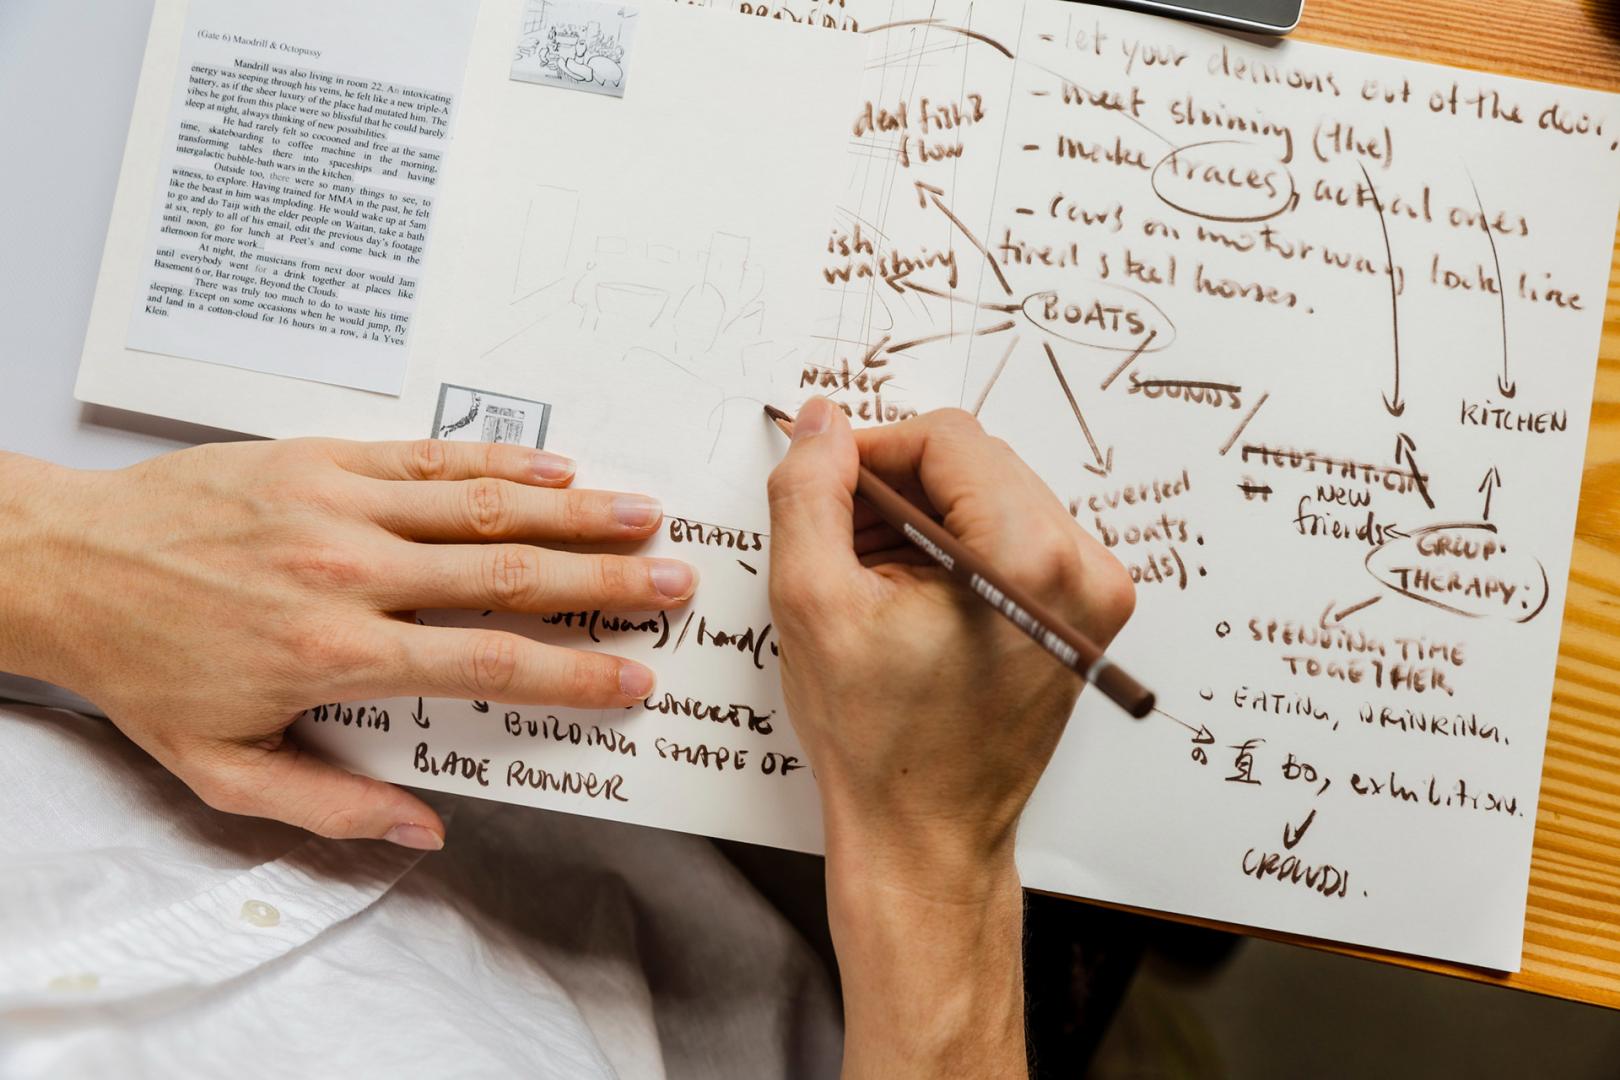 (Gate 6) Maodrill & Octopussy
Mandrill was also living in room 22. An intoxicating
energy was seeping through his veins, he felt like a new triple-A
battery, as if the sheer luxury of the place had mutated him. The
vibes he got from this place were so blissful that he could barely
sleep at night, always thinking of new possibilities.
He had rarely felt so cocooned and free at the same
time, skateboarding to coffee machine in the morning,
transforming tables there into spaceships and having
intergalactic bubble-bath wars in the kitchen.
Outside too, there were so many things to see, to
witness, to explore. Having trained for MMA in the past, he felt
like the beast in him was imploding. He would wake up at 5am
to go and do Taiji with the elder people on Waitan, take a bath
at six, reply to all of his email, edit the previous day's footage
until noon, go for lunch at Peet's and come back in the
afternoon for more work...
At night, the musicians from next door would Jam
until everybody went for a drink together at places like
Basement 6 or, Bar rouge, Beyond the Clouds.
There was truly too much to do to waste his time
sleeping. Except on some occasions when he would jump, fly
and land in a cotton-cloud for 16 hours in a row, à la Yves
Klein.
EMAILS
(ware) / hard(
CONCRETE
BUILDING SHAPE OF
BLADE RUNNER
- let your demons out of the door,
- meet shining (the)
- make traces, actual ones
- cars on motorway look like
tired steel horses.
flow
ish
washing
BOATS,
water
melon
SOUNDS
reversed
boats.
ods).
KITCHEN
MEDITATION
New
friends
GROUP
THERAPY:
SPENDING TIME
TOGETHER
EATING, DRINKING.
exhibition.
CROWDS.